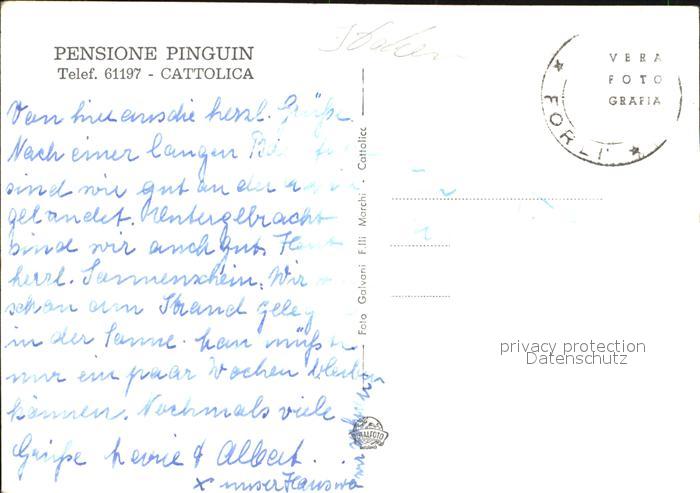 PENSIONE PINGUIN
Telef. 61197 - CATTOLICA
Von hier aus die herzl. Grüße.
Nach einer langen
sind wir gut an der
gelandet. Untergebracht
sind wir auch gut.
herrl. Sonnenschein. Wir
schon am Strand
in der Sonne. man müßte
nur ein paar Wochen bleiben
können. Nochmals viele
Grüße & Albert.
x unser
Foto Galvani F.lli Marchi - Cattolica
VERA
FOTO
GRAFIA
FORLI
privacy protection
Datenschutz